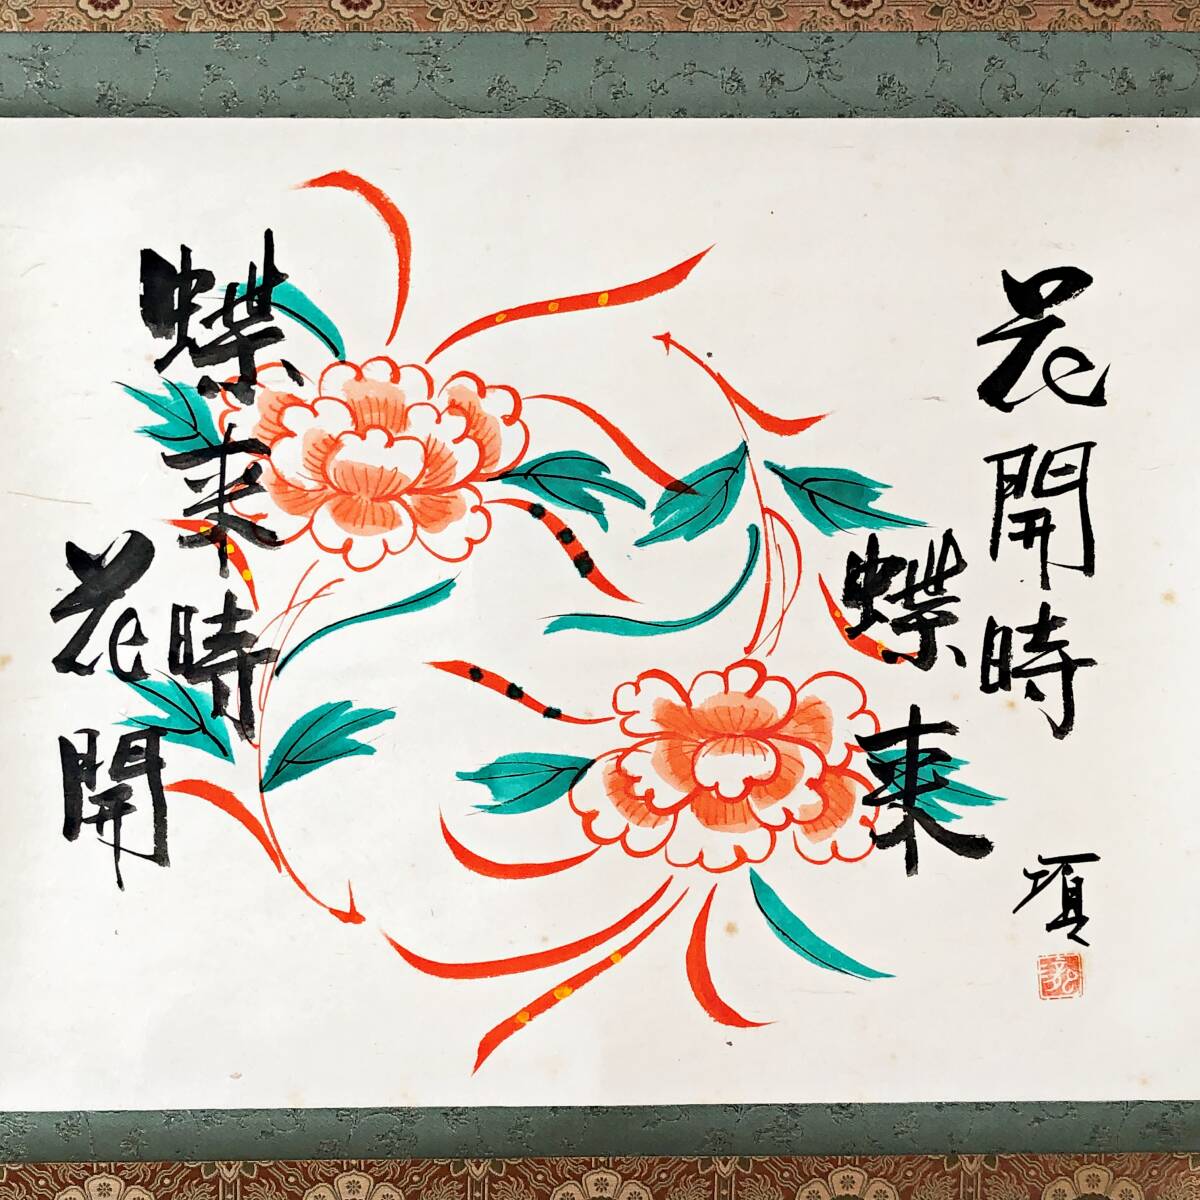 花開時
蝶来
蝶来時
花開
項